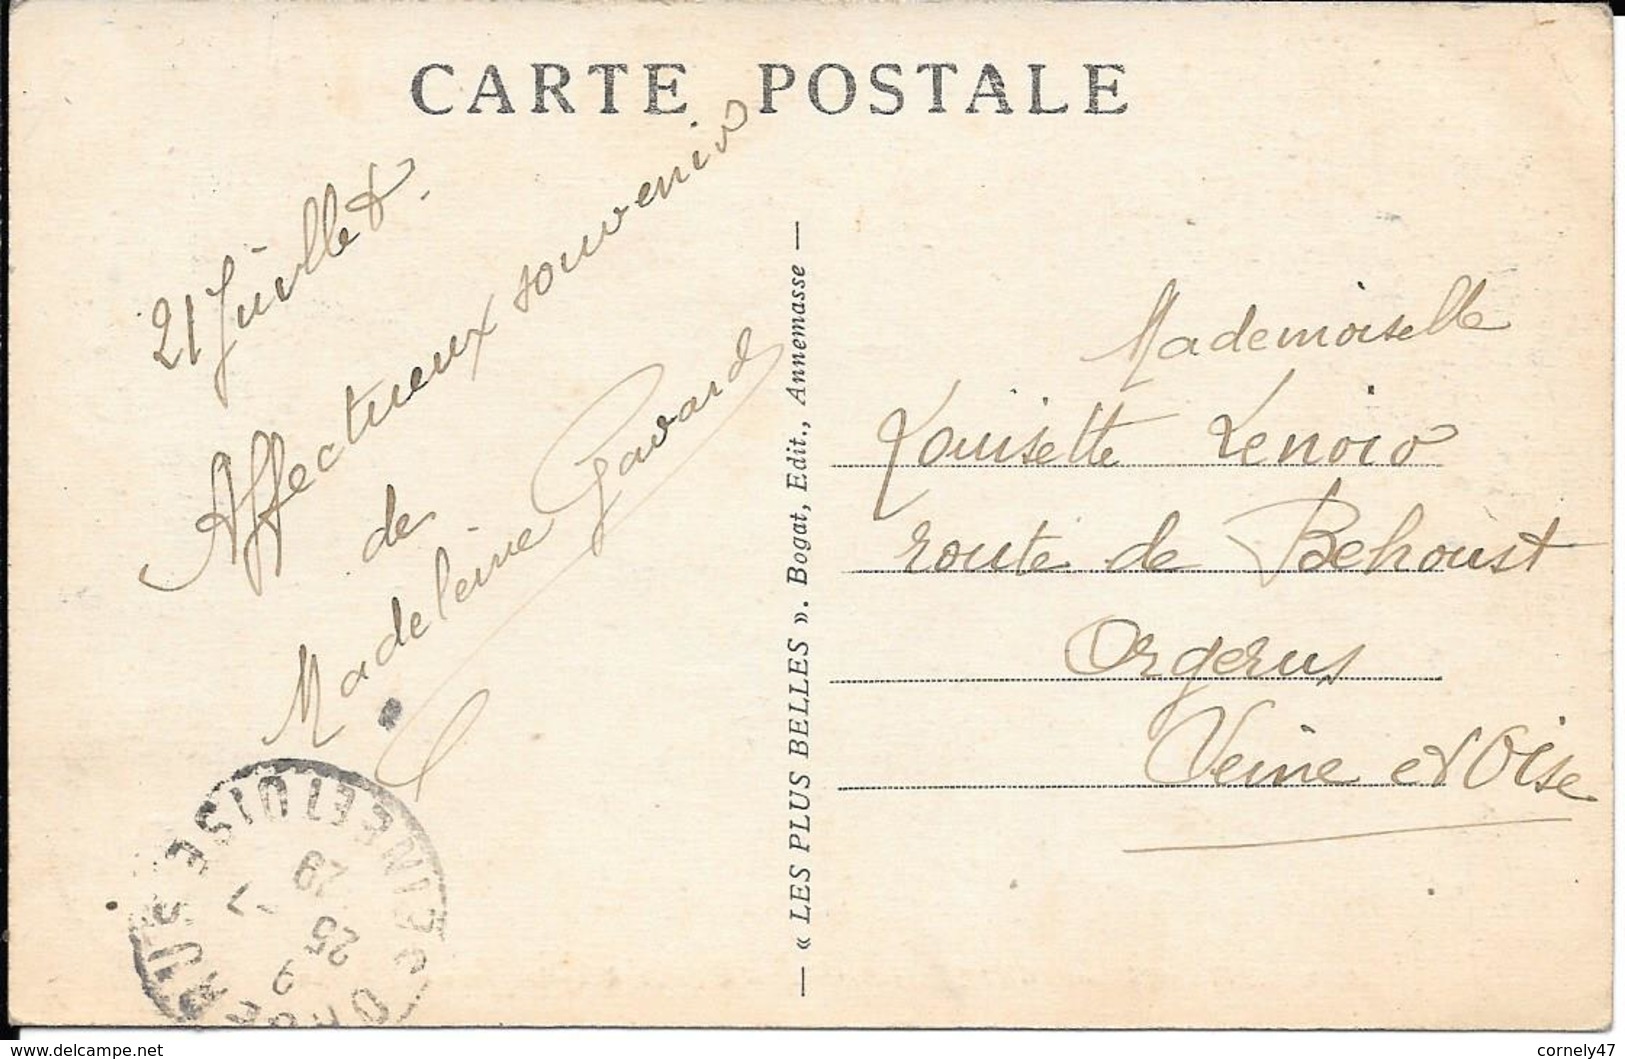 CARTE POSTALE
21 Juillet.
Affectueux souvenir
de
Madeleine Gavard
— « LES PLUS BELLES ». Bogat, Edit., Annemasse —
Mademoiselle
Louisette Lenoir
route de Behoust
Orgerus
Seine et Oise
ORGERUS SEINE ET OISE
9
25 -7
29
www.delcampe.net
cornely47